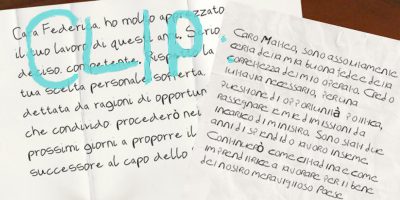 CLIP.
Cara Federi ho molto apprezzato
il tuo lavoro di questi anni. Serio,
deciso, competente. Rispetto la
tua scelta personale, sofferta,
dettata da ragioni di opportun
che condivido. procederò nei
prossimi giorni a proporre il
successore al capo dello
Caro Matteo, sono assolutamente
certa della mia buona fede e della
correttezza del mio operato. Credo
tuttavia necessario, per una
questione di opportunità politica,
rassegnare le mie dimissioni da
incarico di ministro. Sono stati due
anni di splendido lavoro insieme.
Continuerò come cittadina e come
imprenditrice a lavorare per il bene
del nostro meraviglioso Paese